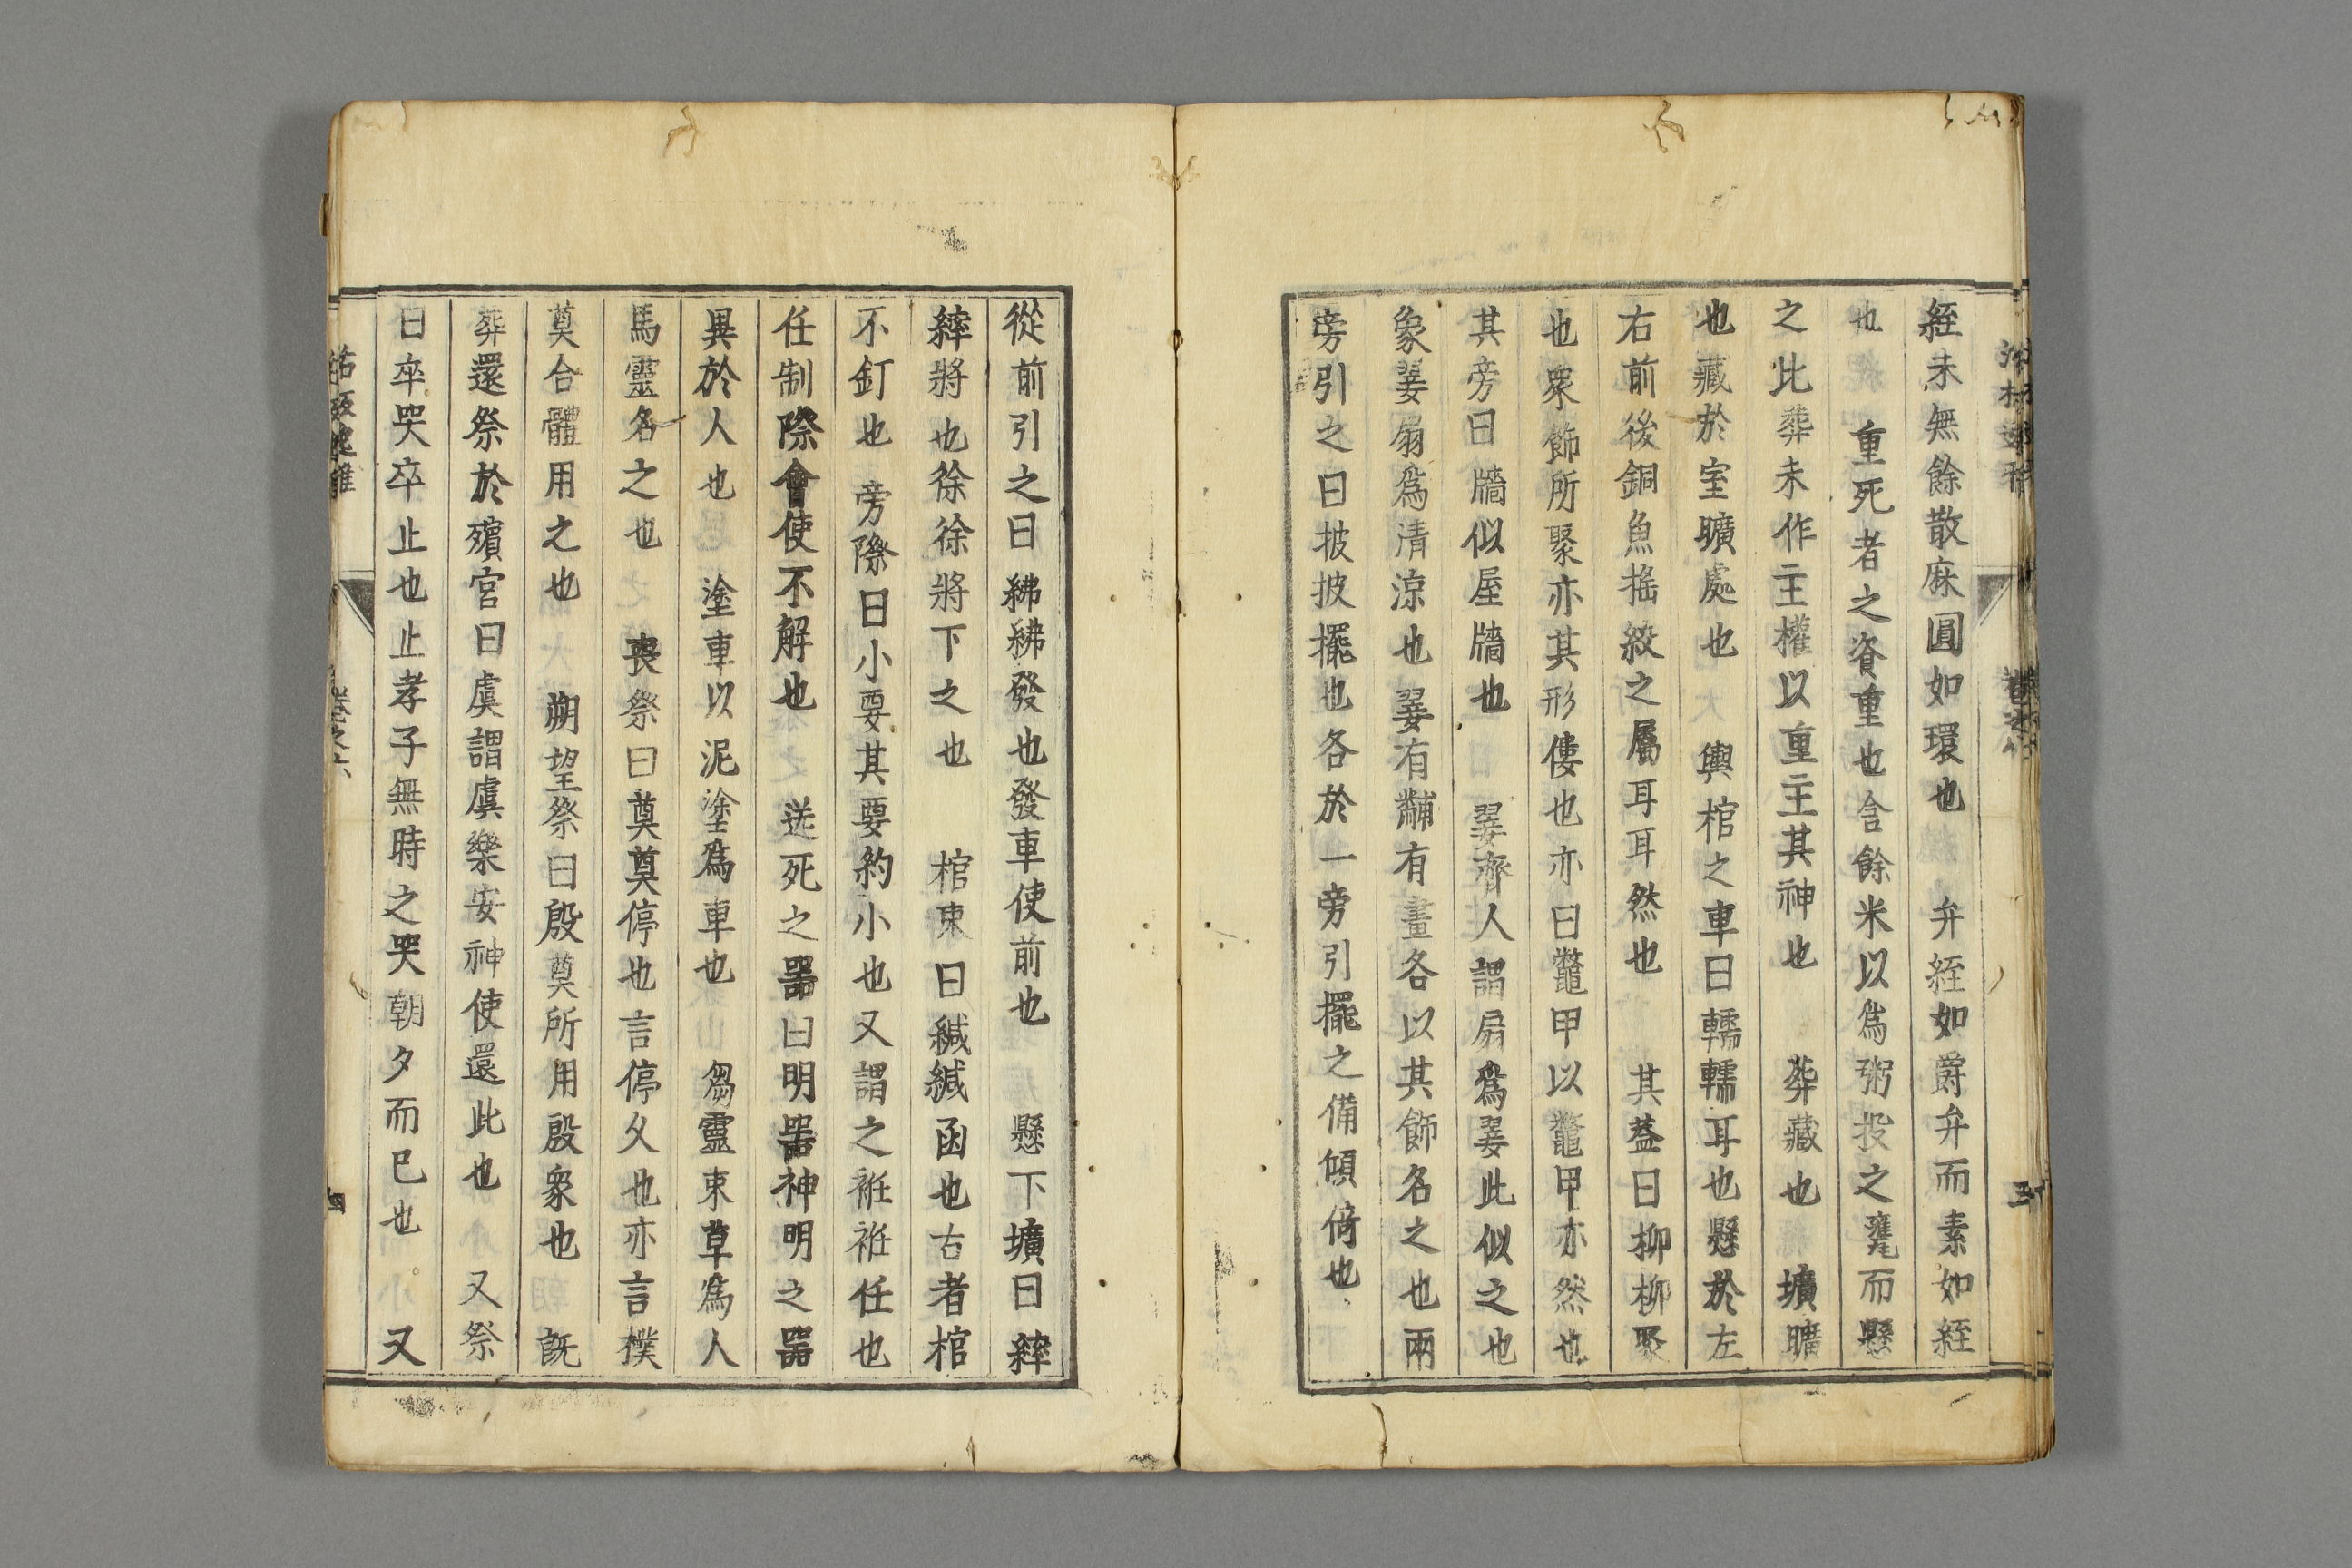 絰末無餘散麻圓如環也　弁絰如爵弁而素如絰
也　重死者之資重也含餘米以爲粥投之甕而懸
之比葬未作主權以重主其神也　葬藏也　壙曠
也藏於室曠處也　輿棺之車曰轜轜耳也懸於左
右前後銅魚揺絞之屬耳耳然也　其蓋曰柳柳聚
也衆飾所聚亦其形僂也亦曰鼈甲以鼈甲亦然也
其旁曰牆似屋牆也　翣齊人謂扇爲翣此似之也
象翣扇爲清涼也翣有黼有畫各以其飾名之也兩
旁引之曰披披擺也各於一旁引擺之備傾倚也
從前引之曰紼紼發也發車使前也　懸下壙曰繂
繂將也徐徐將下之也　棺束曰緘緘函也古者棺
不釘也旁際曰小要其要約小也又謂之袵袵任也
任制際會使不解也　送死之器曰明器神明之器
異於人也　塗車以泥塗爲車也　芻靈束草爲人
馬靈名之也　喪祭曰奠奠停也言停久也亦言樸
奠合體用之也　朔望祭曰殷奠所用殷衆也　旣
葬還祭於殯宮曰虞謂虞樂安神使還此也　又祭
曰卒哭卒止也止孝子無時之哭朝夕而巳也　又
卷之八
四